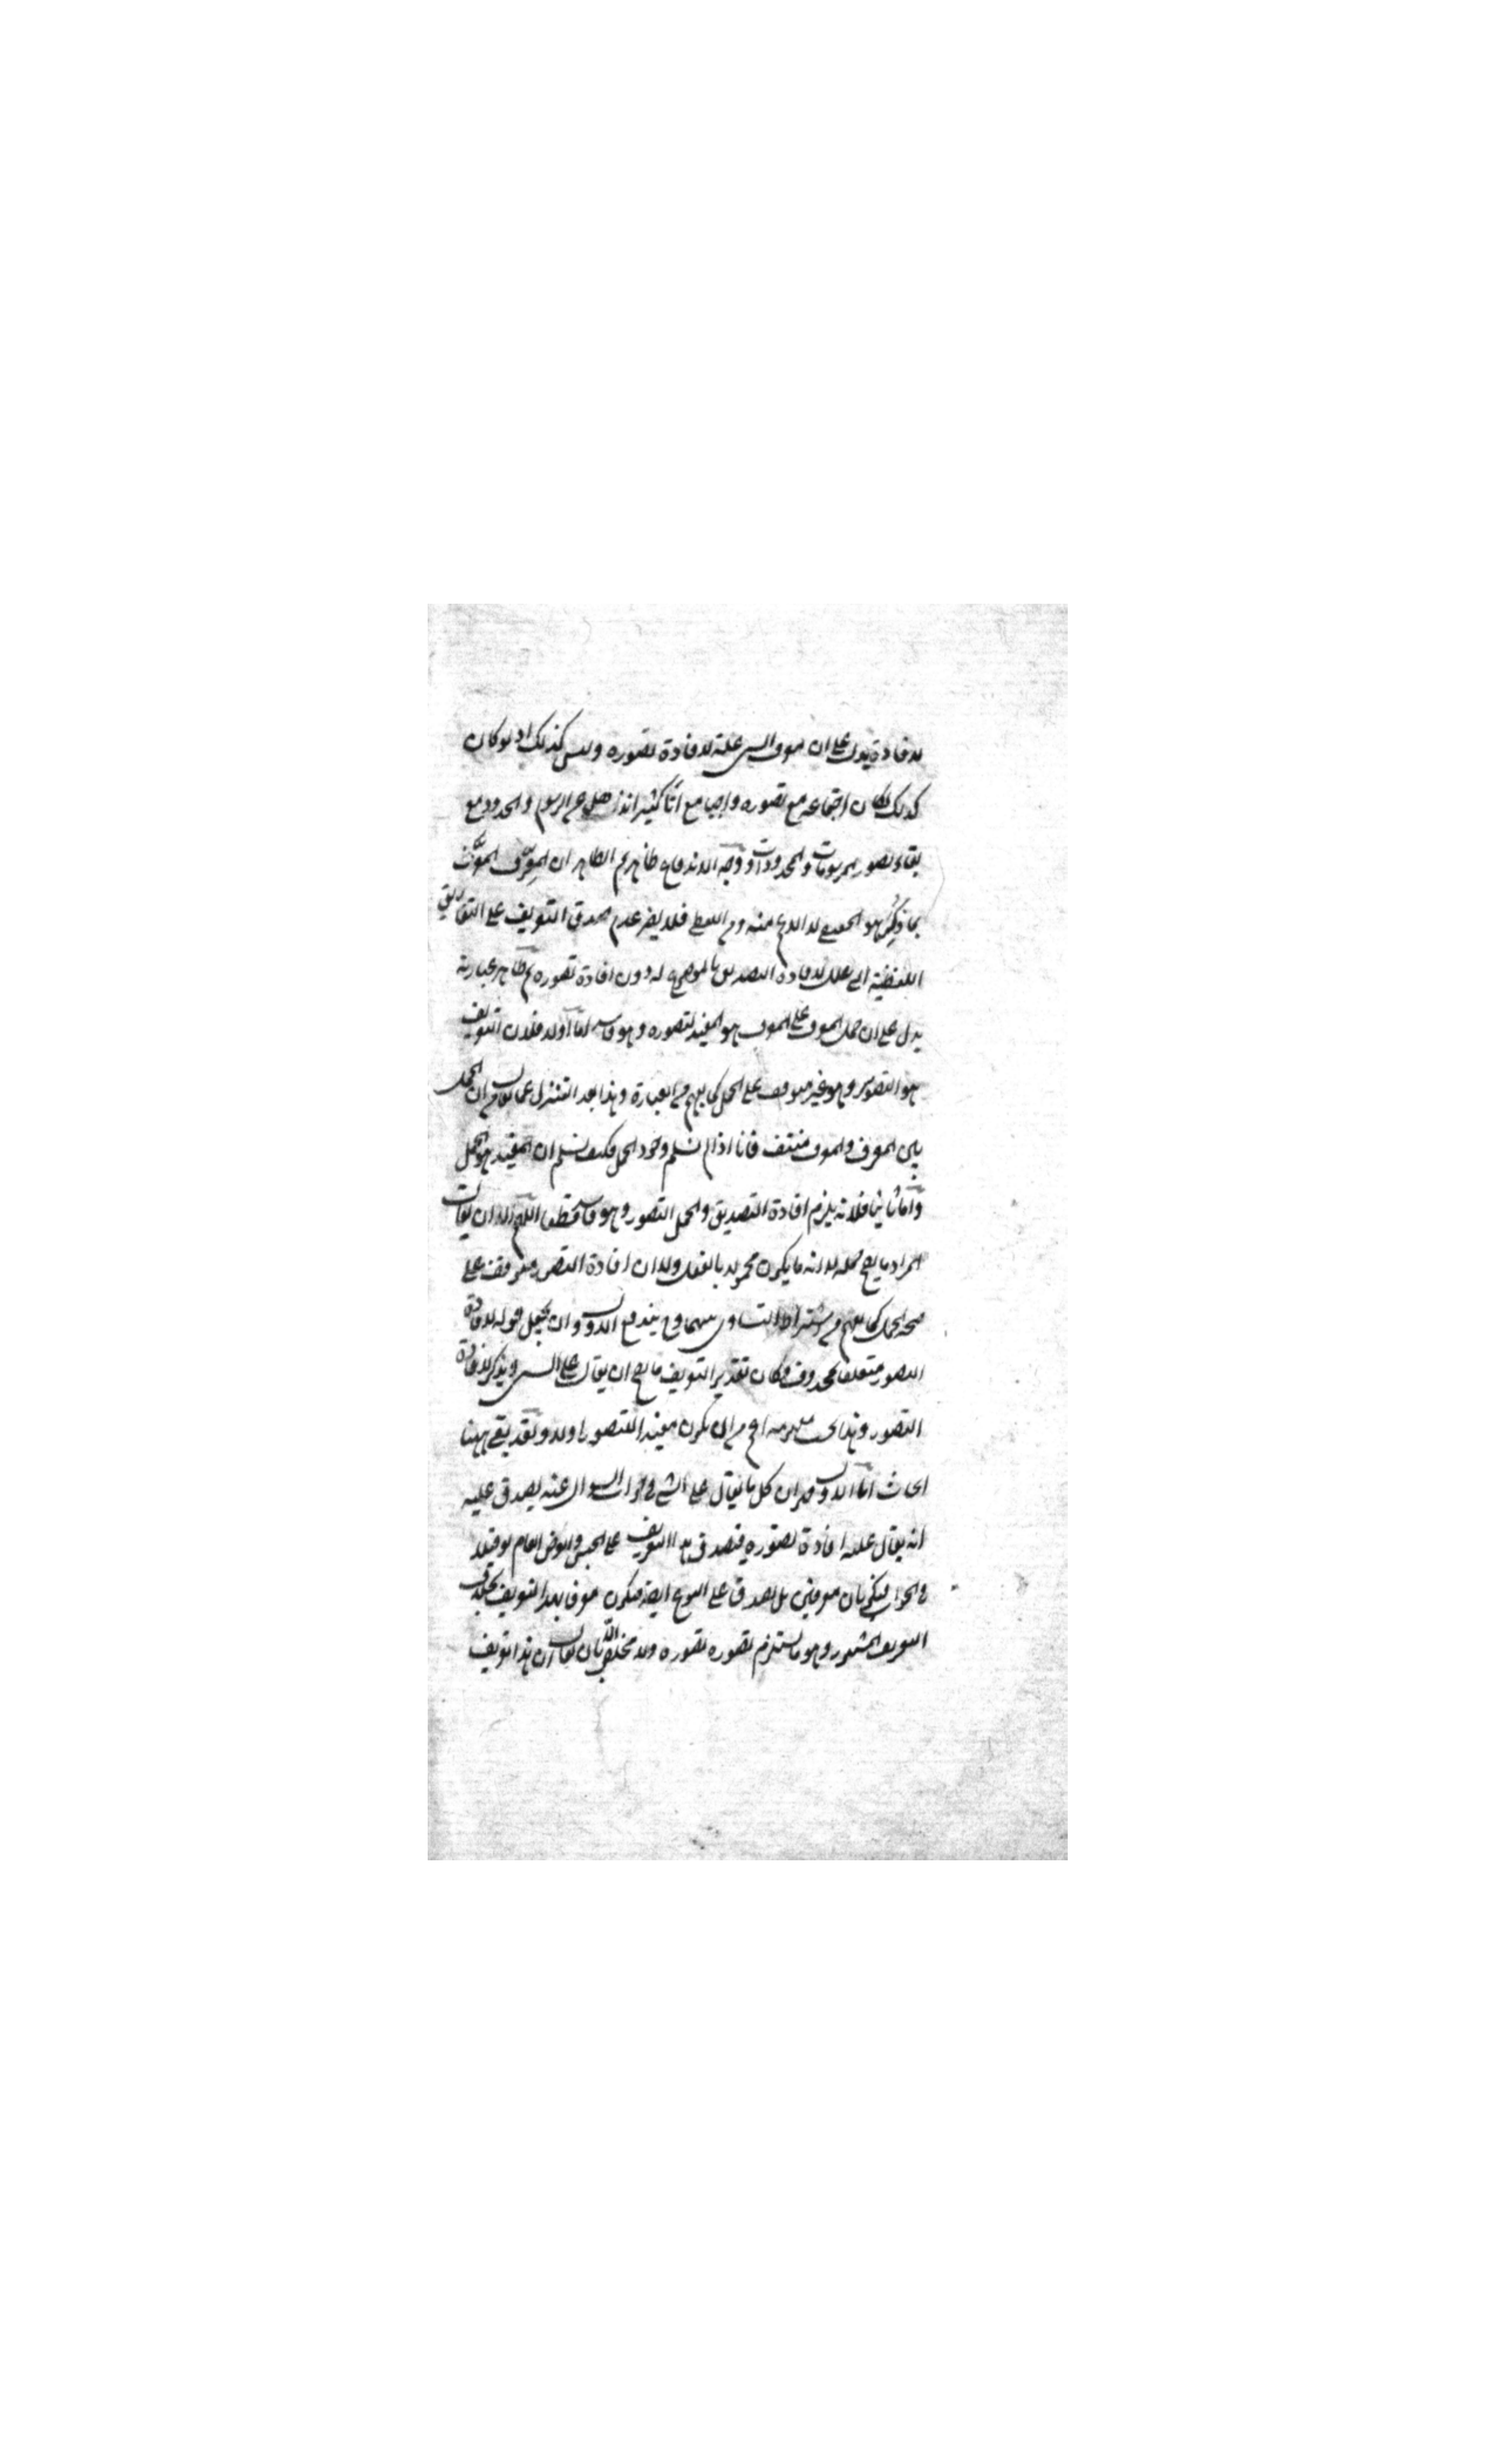 لافادة يدل على ان معرف الشئ علة لافادة تصوره وليس كذلك اذ لو كان
كذلك لكان اجتماعه مع تصوره واجبا مع انا كثيرا نذهل عن الرسوم والحدود مع
بقاء تصور المرسومات والمحدودات ووجه الاندفاع ظاهر ثم الظاهر ان المعرف المعرف
بما ذكر هو الحقيقي لا الاعم منه ومن اللفظي فلا يضر عدم صدق التعريف على التعاريف
اللفظية التي هي لافادة التصديق بالموضوع له دون افادة تصوره ثم ظاهر عبارته
يدل على ان حمل المعرف على المعرف هو المفيد لتصوره وهو فاسد اما اولا فلان التعريف
هو التصوير وهو غير موقوف على الحمل كما يفهم من العبارة وهذا بعد التنزل عما يقال من ان الحمل
بين المعرف والمعرف منتف فانا اذا لم نسلم وجود الحمل فكيف نسلم ان المفيد هو الحمل
واما ثانيا فلانه يلزم افادة التصديق والحمل التصور وهو فاسد قطعا اللهم الا ان يقال
المراد ما يصح حمله لا انه ما يكون محمولا بالفعل ولا ان افادة التصور متوقف على
صحة الحمل كما يفهم من اشتراط التساوي بينهما وح يندفع الاول وان يجعل قوله لافادة
التصور متعلقا بمحذوف فكان تقدير التعريف ما يصح ان يقال على الشئ ويذكر لافادة
التصور وهذا يجب اعم من ان يكون مفيدا للتصور اولا وبقي ههنا
ابحاث اما الاول فهو ان كل ما يقال على الشئ في جواب السؤال عنه يصدق عليه
انه يقال عليه افادة تصوره فيصدق هذا التعريف على الجنس والعرض العام لو قيلا
في الجواب فيكونان معرفين بل يصدق على النوع ايضا فيكون معرفا بهذا التعريف بخلاف
التعريف المشهور وهو ما يستلزم تصوره تصوره ولا مخلص الا بان يقال ان هذا تعريف